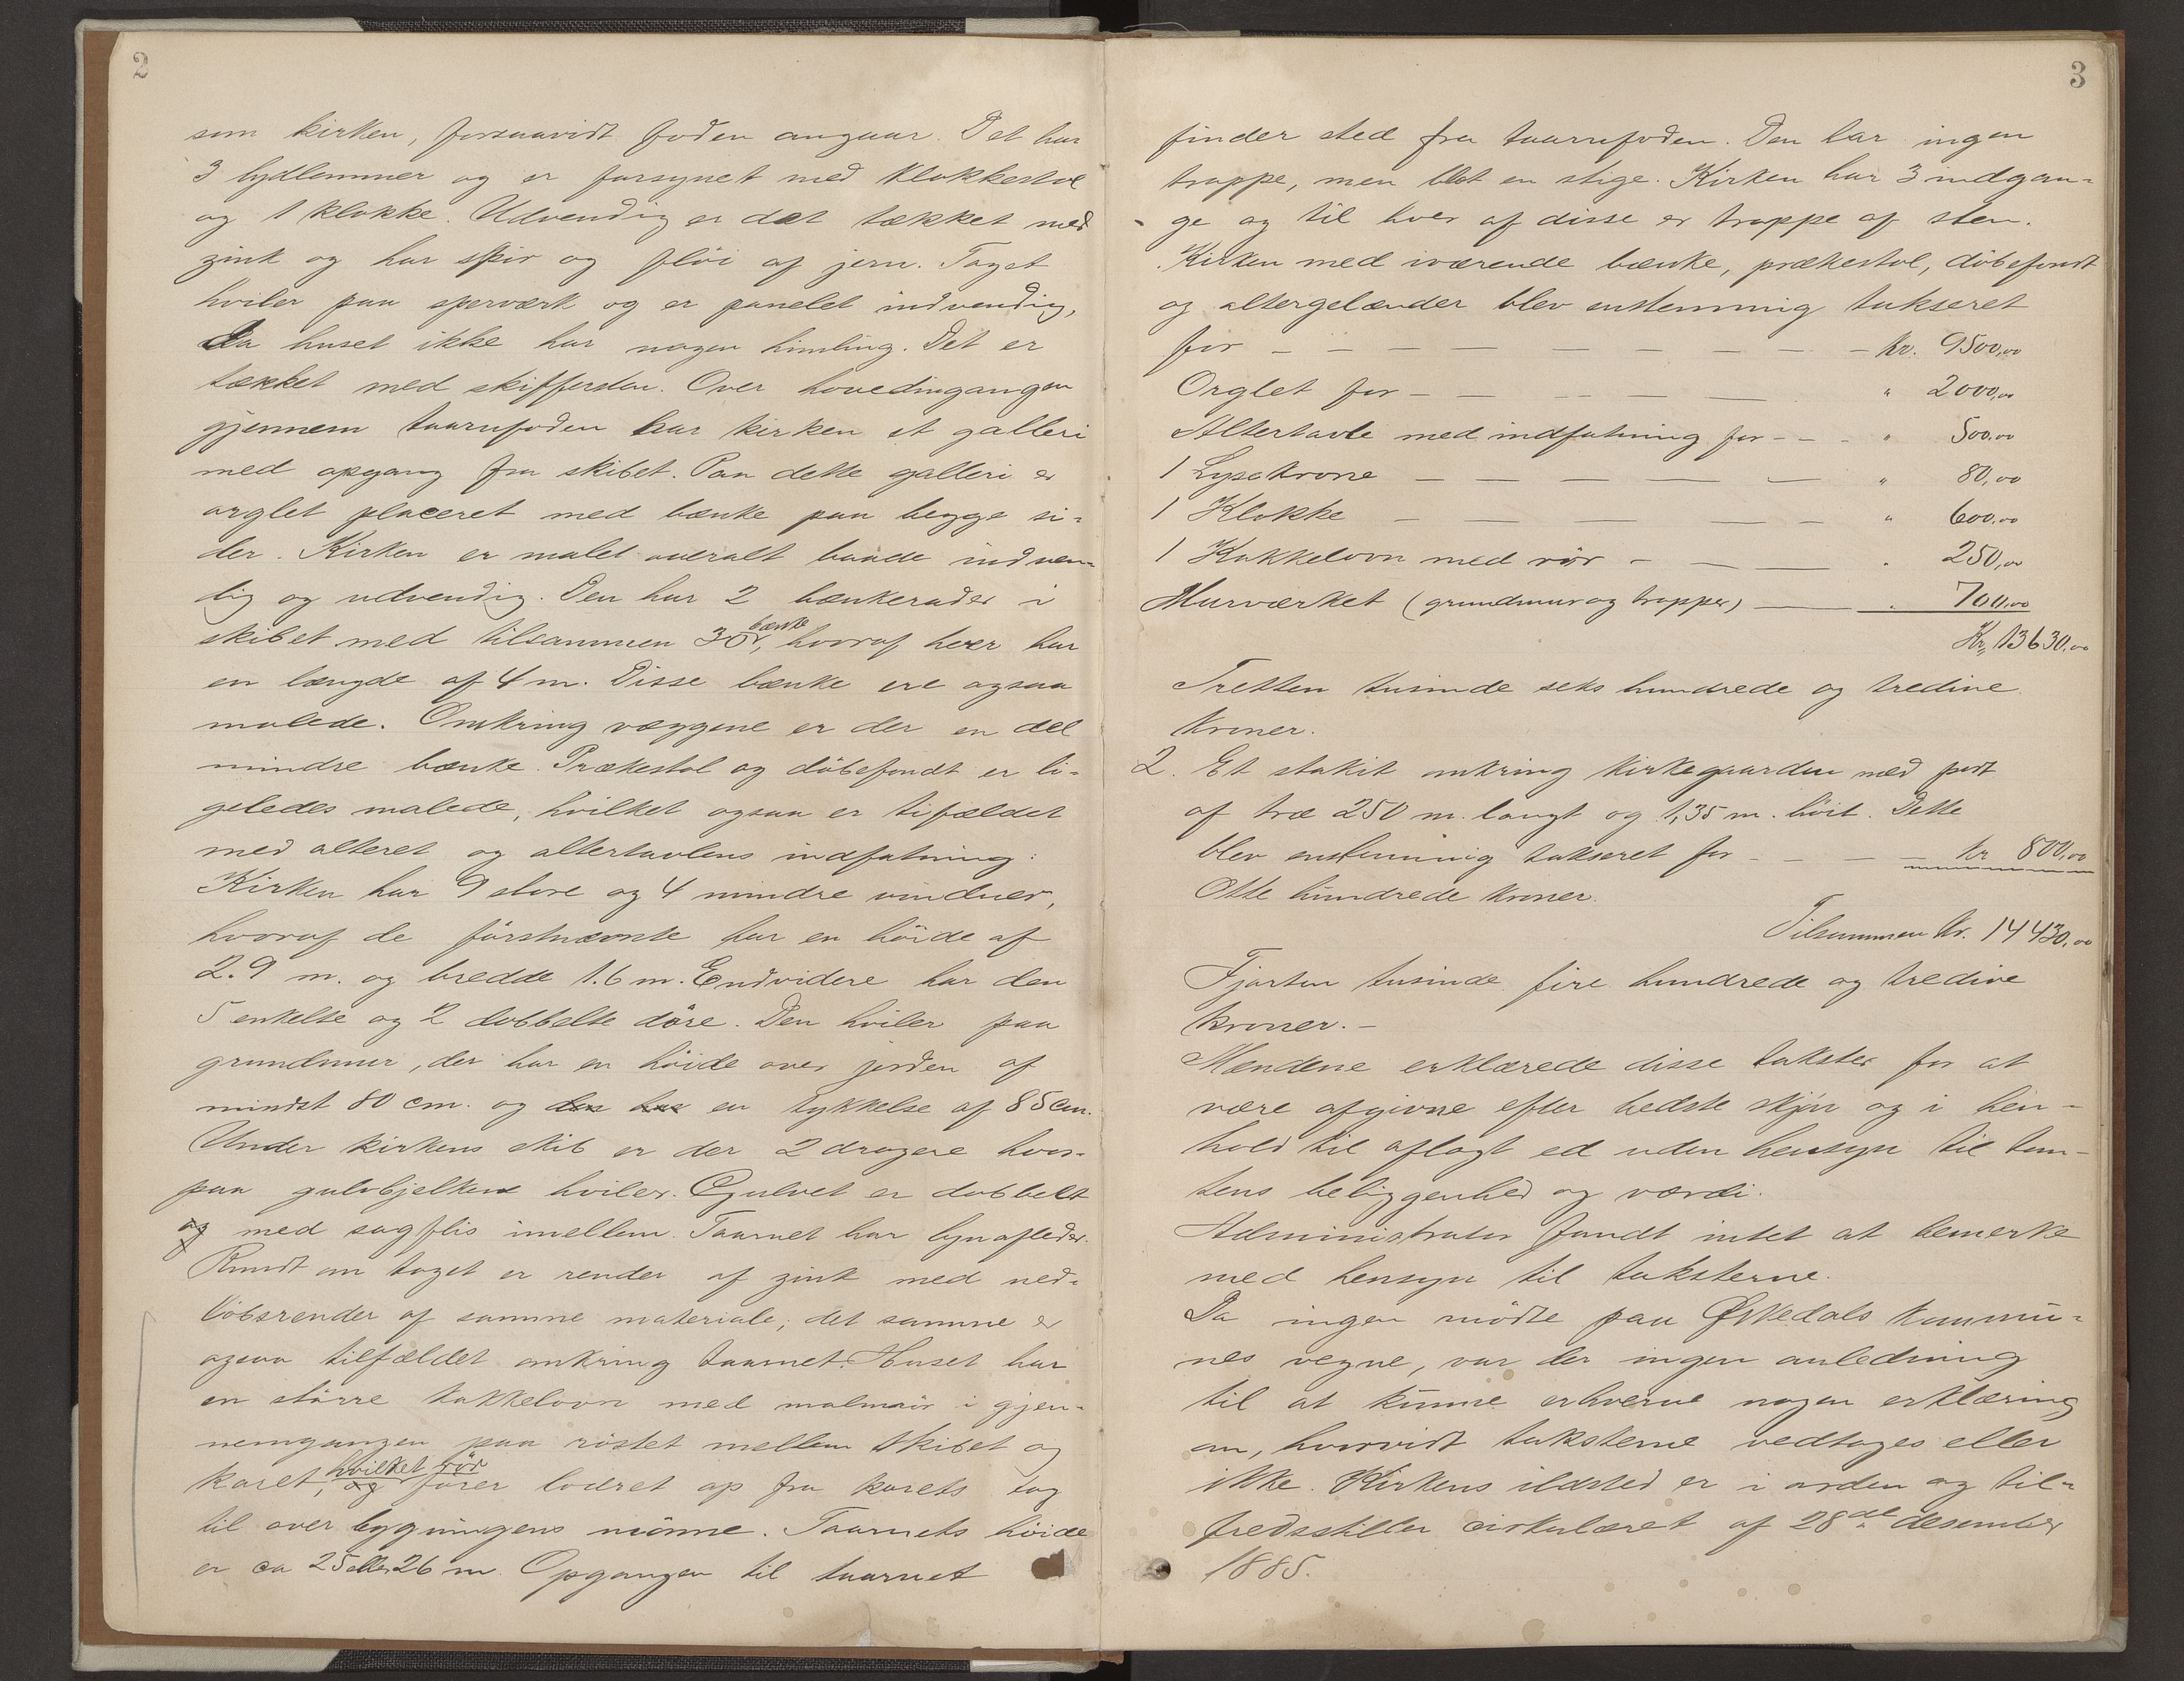 2
som kirken, forsaavidt foden angaar. Det har
3 lydlemmer og er forsynet med klokkestol
og 1 klokke. Udvendig er det tækket med
zink og har spir og flöi af jern. Taget
hviler paa sperværk og er panelet indvendig,
da huset ikke har nogen himling. Det er
tækket med skiffersten. Over hovedingangen
gjennem taarnfoden har kirken et galleri
med opgang fra skibet. Paa dette galleri er
orglet placeret med bænke paa begge si-
der. Kirken er malet overalt baade indven-
dig og udvendig. Den har 2 bænkerader i
skibet med tilsammen 30 bænke, hvoraf hver har
en længde af 4 m. Disse bænke ere ogsaa
malede. Omkring væggene er der en del
mindre bænke. Prækestol og döbefondt er li-
geledes malede, hvilket ogsaa er tifældet
med alteret og altertavlens indfatning:
Kirken har 9 store og 4 mindre vinduer,
hvoraf de förstnævnte har en höide af
2.9 m. og bredde 1.6 m. Endvidere har den
5 enkelte og 2 dobbelte döre. Den hviler paa
grundmur, der har en höide over jorden af
mindst 80 cm. og den har en tykkelse af 85 cm.
Under kirkens skib er der 2 dragere hvor-
paa gulvbjelkene hviler. Gulvet er dobbelt
og med sagflis imellem. Taarnet har lynafleder.
Rundt om taget er render af zink med ned-
löbsrender af samme materiale; det samme er
ogsaa tilfældet omkring taarnet. Huset har
en större kakkelovn med malmrör i gjen-
nemgangen paa röstet mellem skibet og
koret, og hvilket rör förer lodret op fra korets tag
til over bygningens mönne. Taarnets höide
er ca 25 eller 26 m. Opgangen til taarnet
3
finder sted fra taarnfoden. Den har ingen
trappe, men blot en stige. Kirken har 3 indgan-
ge og til hver af disse er trappe af sten.
Kirken med iværende bænke, prækestol, döbefondt
og altergelænder blev enstemmig takseret
for - - - - - - - - kr. 9500,00
Orglet for - - - - - " 2000,00
Altertavle med indfatning for - - - " 500,00
1 Lysekrone - - - - - " 80,00
1 Klokke - - - - - " 600,00
1 Kakkelovn med rör - - - . 250,00
Murværket (grundmur og trapper) - . 700,00
Kr. 13630,00
Tretten tusinde seks hundrede og tredive
kroner.
2. Et stakit omkring kirkegaarden med port
af træ 250 m. langt og 1,35 m. höit. Dette
blev enstemmig takseret for - - - - kr 800,00
Otte hundrede kroner.
Tilsammen kr. 14430,00
Fjorten tusinde fire hundrede og tredive
kroner. -
Mændene erklærede disse takster for at
være afgivne efter bedste skjön og i hen-
hold til aflagt ed uden hensyn til tom-
tens beliggenhed og værdi.
Administrator fandt intet at bemerke
med hensyn til taksterne.
Da ingen mödte paa Øskedals kommu-
nes vegne, var der ingen anledning
til at kunne erhverve nogen erklæring
om, hvorvidt taksterne vedtages eller
ikke. Kirkens ildsted er i orden og til-
fredsstiller cirkulæret af 28de desember
1885.